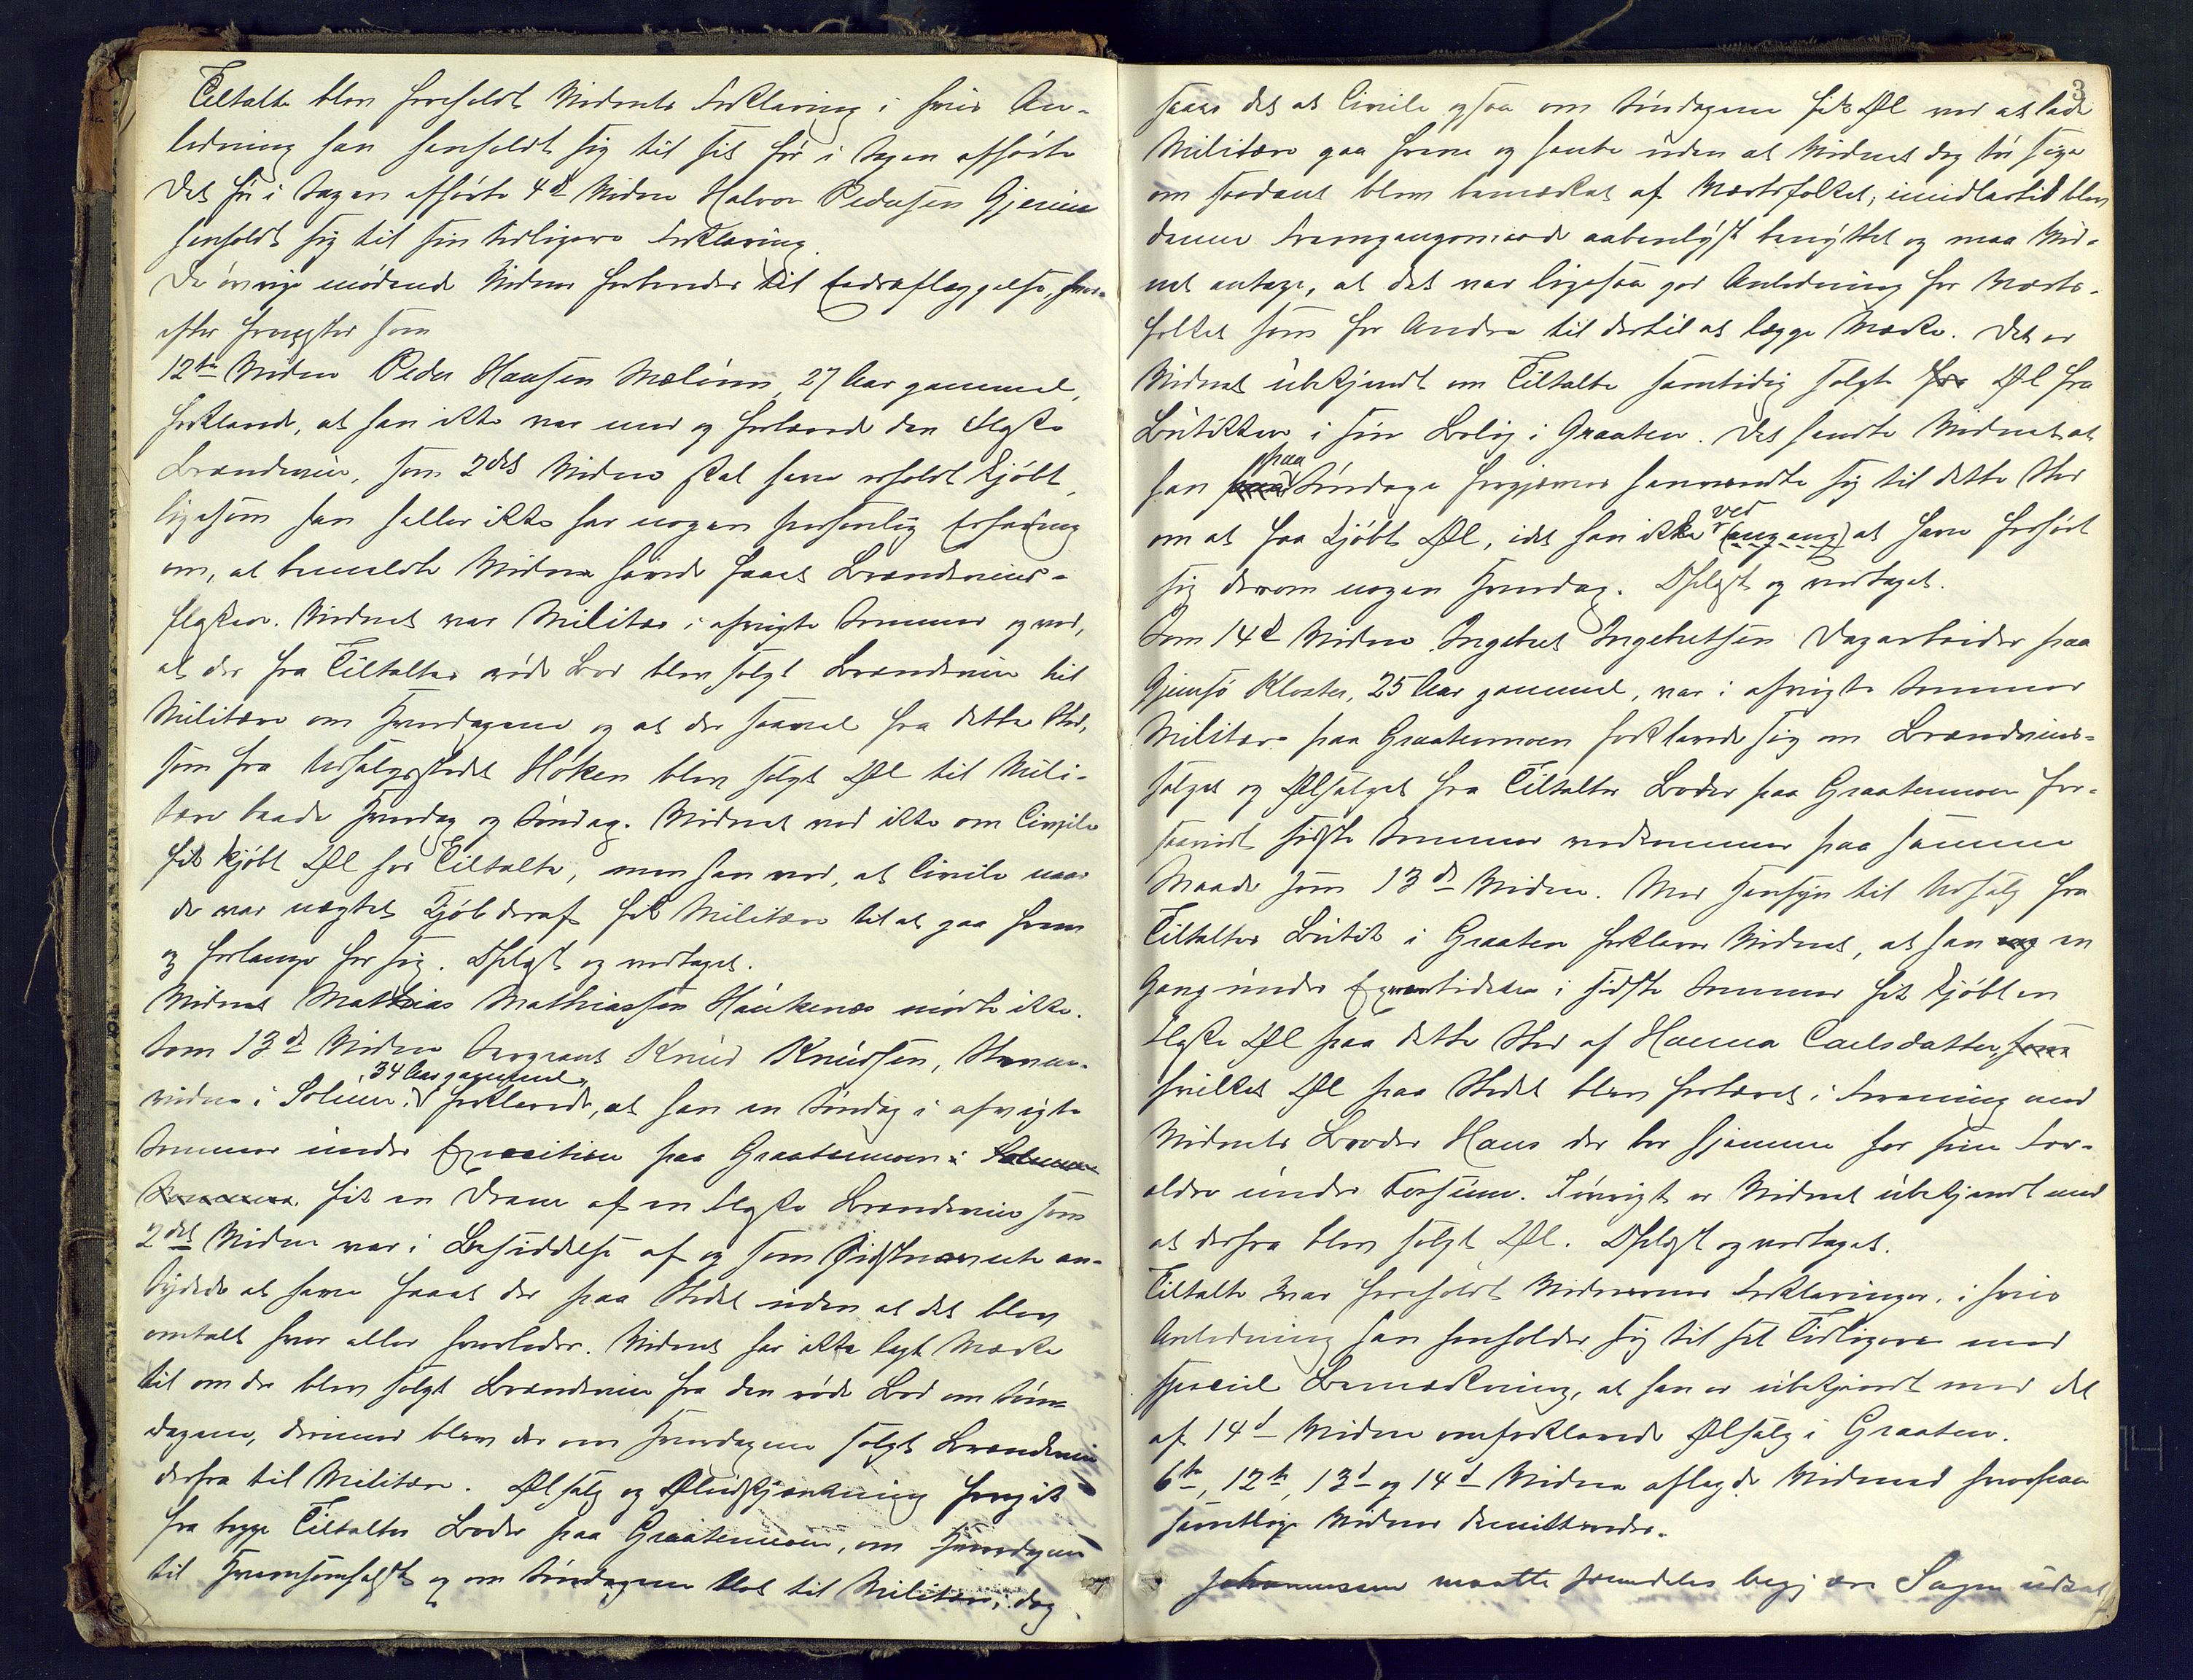 Tiltalte blev foreholdt Vidnets Forklaring i hvis An-
ledning han henholdt sig til sit før i Sagen afhørte
Det før i Sagen afhørte 4de Vidne Halvor Pedersen Gjerum
henholdt sig til sin tidligere Forklaring.
De øvrige mødende Vidner forberedes til Eedsaflæggelse, hvor-
efter fremstod som
12te Vidne Peder Hansen Mælum, 27 Aar gammel,
forklarede, at han ikke var med og fortærede den Flaske
Brændeviin, som 2det Vidne skal have erholdt kjøbt,
ligesom han heller ikke har nogen personlig Erfaring
om, at bemeldte Vidne havde faaet Brændeviins-
flasken. Vidnet var Militær i afvigte Sommer og ved,
at der fra Tiltaltes røde Bod blev solgt Brændeviin til
Militære om Hverdagene og at der saavel fra dette Sted,
som fra Udsalgsstedet Høken blev solgt Øl til Mili-
tære baade Hverdag og Søndag. Vidnet ved ikke om Civile
fik kjøbt Øl hos Tiltalte, men han ved, at Civile naar
de var nægtet Kjøb deraf fik Militære til at gaa frem
og forlange for sig. Oplæst og vedtaget.
Vidnet Mathias Mathiassen Haukenæs mødte ikke.
Som 13de Vidne Sergeant Knud Knudsen,
i Solum, 34 Aar gammel, forklarede, at han en Søndag i afvigte
Sommer under Exercitien paa Graatenmoen i Solum
Sommeren fik en Dram af en Flaske Brændeviin som
2det Vidne var i Besiddelse af og som Sidstnævnte an-
tydede at have faaet der paa Stedet uden at det blev
omtalt hvor eller hvorledes. Vidnet har ikke lagt Mærke
til om der blev solgt Brændeviin fra den røde Bod om Søn-
dagene, derimod blev der om Hverdagene solgt Brændeviin
derfra til Militære. Ølsalg og Øludskjænkning foregik
fra begge Tiltaltes Boder paa Graatenmoen, om Hverdagene
til Hvemsomhelst og om Søndagene blot til Militære, dog
3
saaes det at Civile ogsaa om Søndagene fik Øl ved at lade
Militære gaa frem og hente uden at Vidnet dog tør sige
om saadant blev bemærket af Værtsfolket; imidlertid blev
denne Fremgangsmaade aabenlyst benyttet og maa Vid-
net antage, at det var ligesaa god Anledning for Værts-
folket som for Andre til dertil at lægge Mærke. Det er
Vidnet ubekjendt om Tiltalte samtidig solgte for Øl fra
Butikken i sin Bolig i Graaten. Det hendte Vidnet at
han paa Søndage forgjæves henvendte sig til dette Sted
om at faa kjøbt Øl, idet han ikke ved (engang) at have forhørt
sig derom nogen Hverdag. Oplæst og vedtaget.
Som 14de Vidne Ingebret Ingebretsen Dagarbeider paa
Gjemsø Kloster, 25 Aar gammel, var i afvigte Sommer
Militær paa Graatenmoen forklarede sig om Brændeviins-
salget og Ølsalget fra Tiltaltes Boder paa Graatenmoen for-
saavidt sidste Sommer vedkommer paa samme
Maade som 13de Vidne. Med Hensyn til Udsalg fra
Tiltaltes Butik i Graaten forklarer Vidnet, at han eng en
Gang under Exercertiden i sidste Sommer fik kjøbt en
Flaske Øl paa dette Sted af Hanna Carlsdatter, som
hvilket Øl paa Stedet blev fortæret i Forening med
Vidnets Broder Hans der bor hjemme hos sine For-
ældre under Fossum. Iøvrigt er Vidnet ubekjendt med
at derfra blev solgt Øl. Oplæst og vedtaget.
Tiltalte var foreholdt Vidnernes Forklaringer, i hvis
Anledning han henholder sig til sit Tidligere med
speciel Bemærkning, at han er ubekjendt med det
af 14de Vidne omforklarede Ølsalg i Graaten.
6te, 12te, 13de og 14de Vidne aflagde Vidneed hvorpaa
samtlige Vidner demitteredes.
Johannessen maatte fremdeles begjære Sagen udsat